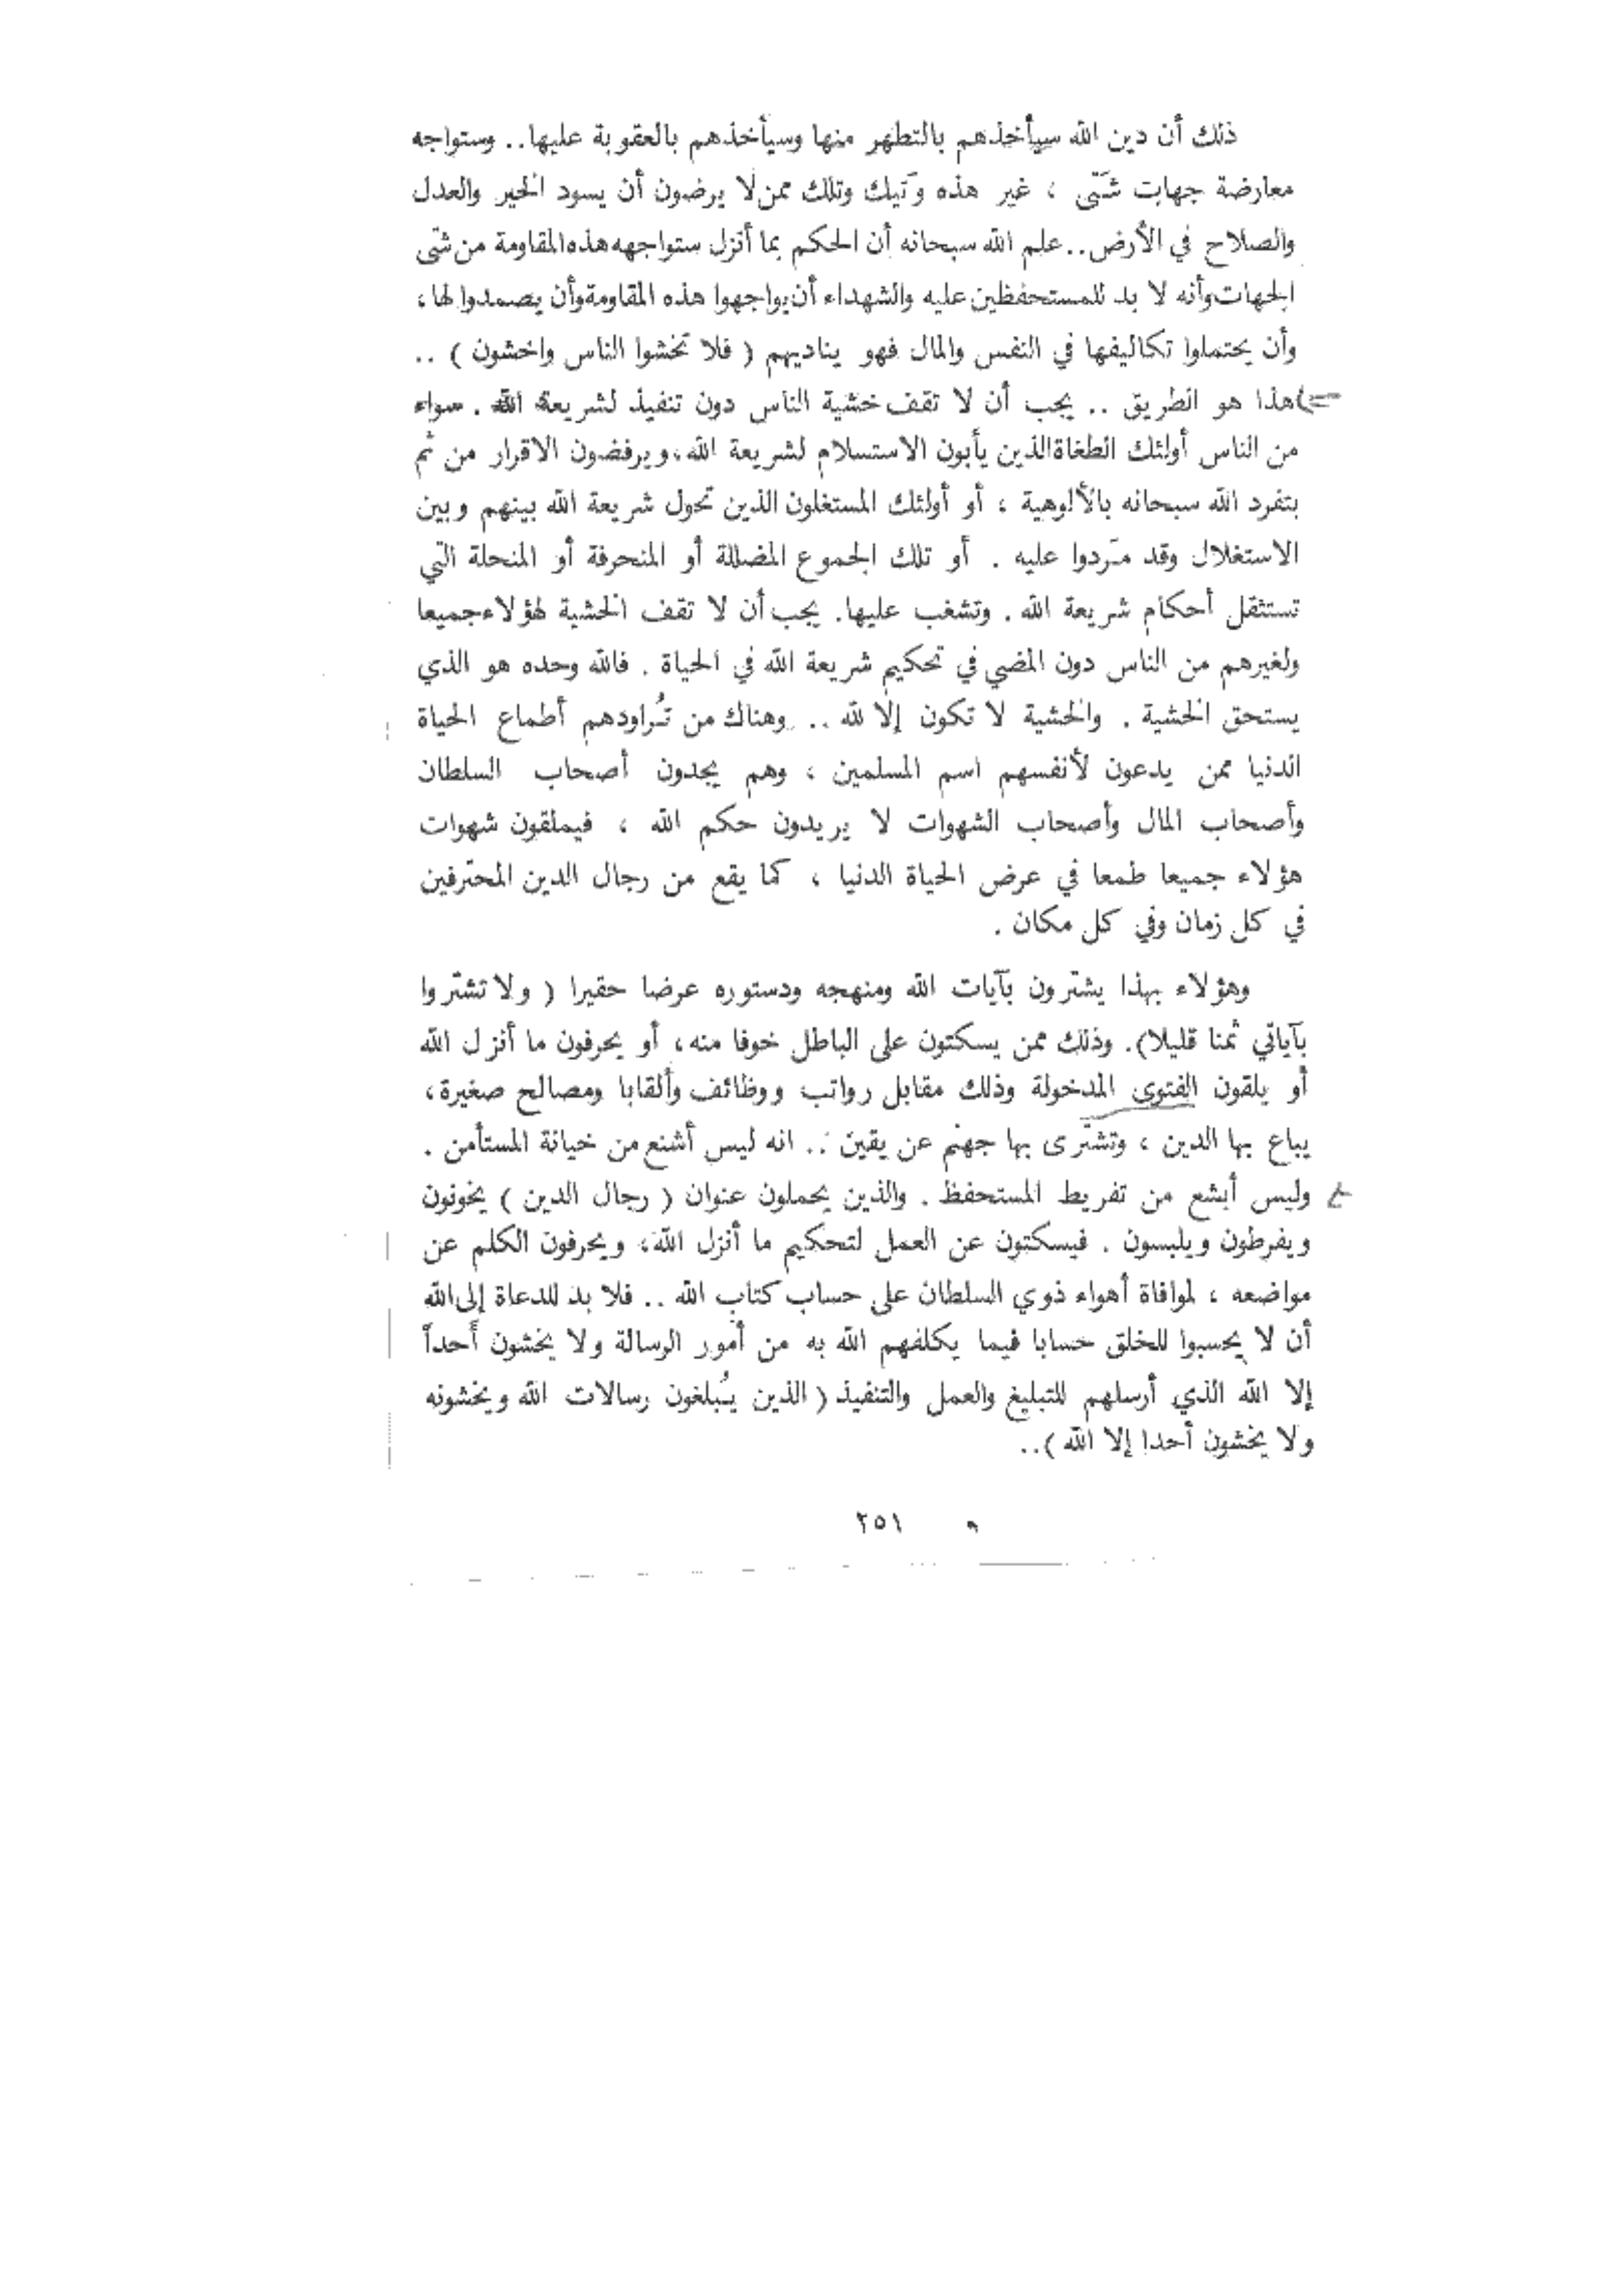 ذلك أن دين الله سيأخذهم بالتطهر منها وسيأخذهم بالعقوبة عليها.. وستواجه
معارضة جهات شتّى ، غير هذه وتيك وتلك ممن لا يرضون أن يسود الخير والعدل
والصلاح في الأرض.. علم الله سبحانه أن الحكم بما أنزل ستواجهه هذه المقاومة من شتى
الجهات وأنه لا بد للمستحفظين عليه والشهداء أن يواجهوا هذه المقاومة وأن يصمدوا لها ،
وأن يحتملوا تكاليفها في النفس والمال فهو يناديهم ( فلا تخشوا الناس واخشون ) ..
هذا هو الطريق .. يجب أن لا تقف خشية الناس دون تنفيذ لشريعة الله . سواء
من الناس أولئك الطغاة الذين يأبون الاستسلام لشريعة الله ، ويرفضون الاقرار من ثم
بتفرد الله سبحانه بالألوهية ، أو أولئك المستغلون الذين تحول شريعة الله بينهم وبين
الاستغلال وقد مرّدوا عليه . أو تلك الجموع المضللة أو المنحرفة أو المنحلة التي
تستثقل أحكام شريعة الله . وتشغب عليها. يجب أن لا تقف الخشية لهؤلاء جميعا
ولغيرهم من الناس دون المضي في تحكيم شريعة الله في الحياة . فالله وحده هو الذي
يستحق الخشية . والخشية لا تكون إلا لله .. وهناك من تُراودهم أطماع الحياة
الدنيا ممن يدعون لأنفسهم اسم المسلمين ، وهم يجدون أصحاب السلطان
وأصحاب المال وأصحاب الشهوات لا يريدون حكم الله ، فيملقون شهوات
هؤلاء جميعا طمعا في عرض الحياة الدنيا ، كما يقع من رجال الدين المحترفين
في كل زمان وفي كل مكان .
وهؤلاء بهذا يشترون بآيات الله ومنهجه ودستوره عرضا حقيرا ( ولا تشتروا
بآياتي ثمنا قليلا). وذلك ممن يسكتون على الباطل خوفا منه ، أو يحرفون ما أنزل الله
أو يلقون الفتوى المدخولة وذلك مقابل رواتب ووظائف وألقابا ومصالح صغيرة ،
يباع بها الدين ، وتشترى بها جهنم عن يقين .. انه ليس أشنع من خيانة المستأمن .
وليس أبشع من تفريط المستحفظ . والذين يحملون عنوان ( رجال الدين ) يخونون
ويفرطون ويلبسون . فيسكتون عن العمل لتحكيم ما أنزل الله ، ويحرفون الكلم عن
مواضعه ، لموافاة أهواء ذوي السلطان على حساب كتاب الله .. فلا بد للدعاة إلى الله
أن لا يحسبوا للخلق حسابا فيما يكلفهم الله به من أمور الرسالة ولا يخشون أحداً
إلا الله الذي أرسلهم للتبليغ والعمل والتنفيذ ( الذين يُبلغون رسالات الله ويخشونه
ولا يخشون أحدا إلا الله )..
٢٥١